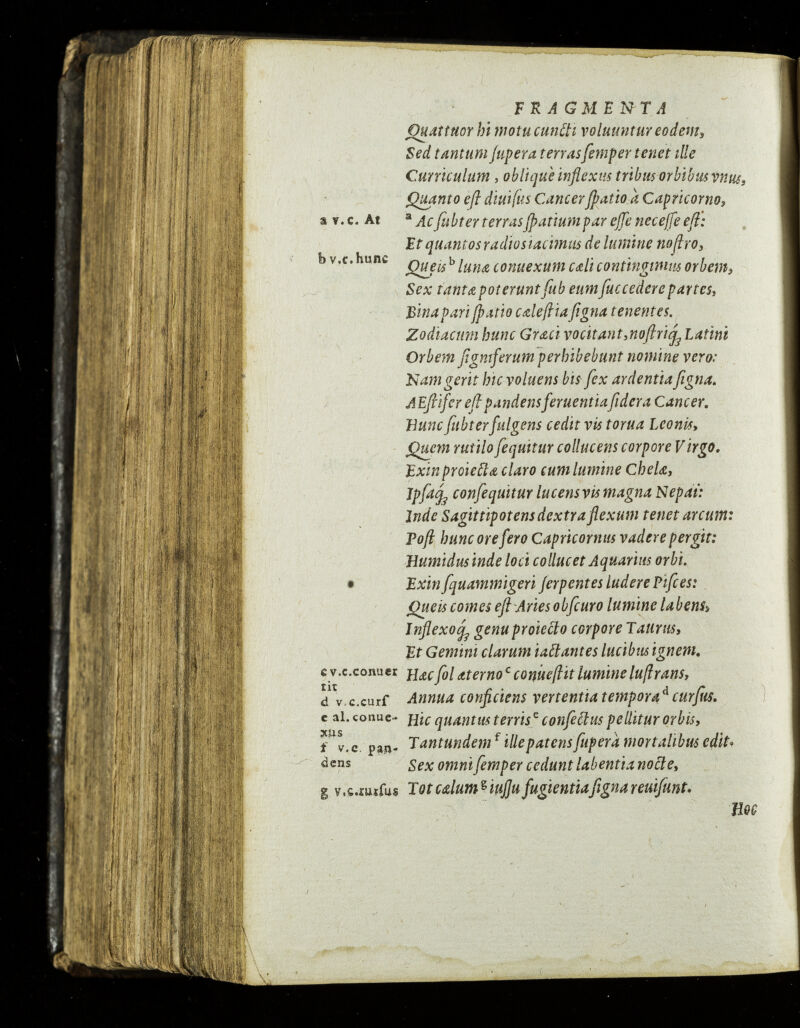 FRAGMENTA
Quattuor hi motu cuncti voluuntur eodem,
Sed tantum ſupera terras ſemper tenet ille
Curriculum, oblique inflexus tribus orbibus vnus,
Quanto eſt diuiſus Cancer ſpatio à Capricorno,
a v.c. At
ᵃ Ac ſubter terras ſpatium par eſſe neceſſe eſt:
Et quantos radios iacimus de lumine noſtro,
b v.c. hunc
Queis ᵇ lunæ conuexum cæli contingimus orbem,
Sex tantæ poterunt ſub eum ſuccedere partes,
Bina pari ſpatio cæleſtia ſigna tenentes.
Zodiacum hunc Græci vocitant, noſtriq; Latini
Orbem ſigniferum perhibebunt nomine vero:
Nam gerit hic voluens bis ſex ardentia ſigna.
AEſtifer eſt pandens feruentia ſidera Cancer.
Hunc ſubter fulgens cedit vis torua Leonis,
Quem rutilo ſequitur collucens corpore Virgo.
Exin proiectæ claro cum lumine Chelæ,
Ipſaq; conſequitur lucens vis magna Nepai:
Inde Sagittipotens dextra flexum tenet arcum:
Poſt hunc ore fero Capricornus vadere pergit:
Humidus inde loci collucet Aquarius orbi.
Exin ſquammigeri ſerpentes ludere Piſces:
Queis comes eſt Aries obſcuro lumine labens,
Inflexoq; genu proiecto corpore Taurus,
Et Gemini clarum iactantes lucibus ignem.
c v.c. conuer
tit
Hæc ſol æterno ᶜ conueſtit lumine luſtrans,
d v.c. curſ
Annua conficiens vertentia tempora ᵈ curſus.
e al. conue-
xus
Hic quantus terris ᵉ confectus pellitur orbis,
f v.c. pan-
dens
Tantundem ᶠ ille patens ſuperà mortalibus edit.
Sex omni ſemper cedunt labentia nocte,
g v.c. rurſus
Tot cælum ᵍ iuſſu fugientia ſigna reuiſunt.
Hoc